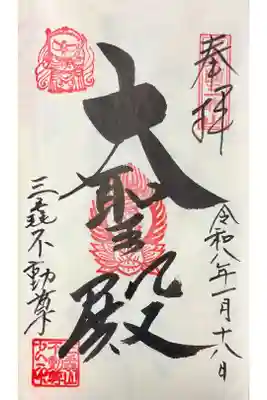 奉拝
令和八年一月十八日
大聖殿
三春不動尊